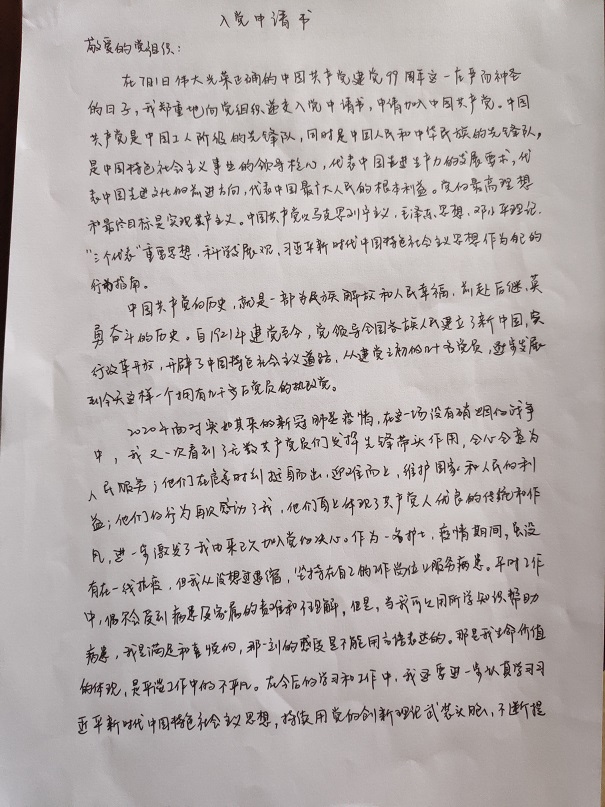 入党申请书
敬爱的党组织：
在7月1日伟大光荣正确的中国共产党建党99周年这一庄严而神圣
的日子，我郑重地向党组织递交入党申请书，申请加入中国共产党。中国
共产党是中国工人阶级的先锋队，同时是中国人民和中华民族的先锋队，
是中国特色社会主义事业的领导核心，代表中国先进生产力的发展要求，代
表中国先进文化的前进方向，代表中国最广大人民的根本利益。党的最高理想
和最终目标是实现共产主义。中国共产党以马克思列宁主义、毛泽东思想、邓小平理论、
“三个代表”重要思想、科学发展观、习近平新时代中国特色社会主义思想作为自己的
行动指南。
中国共产党的历史，就是一部为民族解放和人民幸福，前赴后继，英
勇奋斗的历史。自1921年建党至今，党领导全国各族人民建立了新中国，实
行改革开放，开辟了中国特色社会主义道路，从建党之初的几十名党员，逐步发展
到今天这样一个拥有几千万名党员的执政党。
2020年面对突如其来的新冠肺炎疫情，在这一场没有硝烟的战争
中，我又一次看到了无数共产党员们发挥先锋带头作用，全心全意为
人民服务；他们在危难时刻挺身而出，迎难而上，维护国家和人民的利
益；他们的行为再次感动了我，他们身上体现了共产党人优良的传统和作
风，进一步激发了我由来已久加入党的决心。作为一名护士，疫情期间，虽没
有在一线抗疫，但我从没想过退缩，坚持在自己的工作岗位上服务病患。平时工作
中，偶尔会受到病患及家属的责难和不理解，但是，当我可以用所学知识帮助
病患，我是满足和喜悦的，那一刻的感受是不能用言语表达的。那是我生命价值
的体现，是平淡工作中的不平凡。在今后的学习和工作中，我还要进一步认真学习习
近平新时代中国特色社会主义思想，持续用党的创新理论武装头脑，不断提